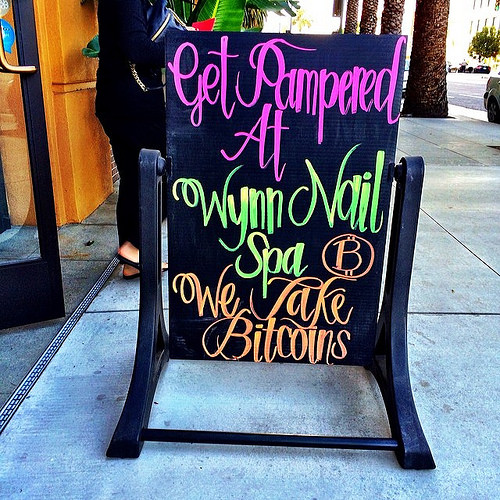 Get Pampered
At
Wynn Nail
Spa
We Take
Bitcoins